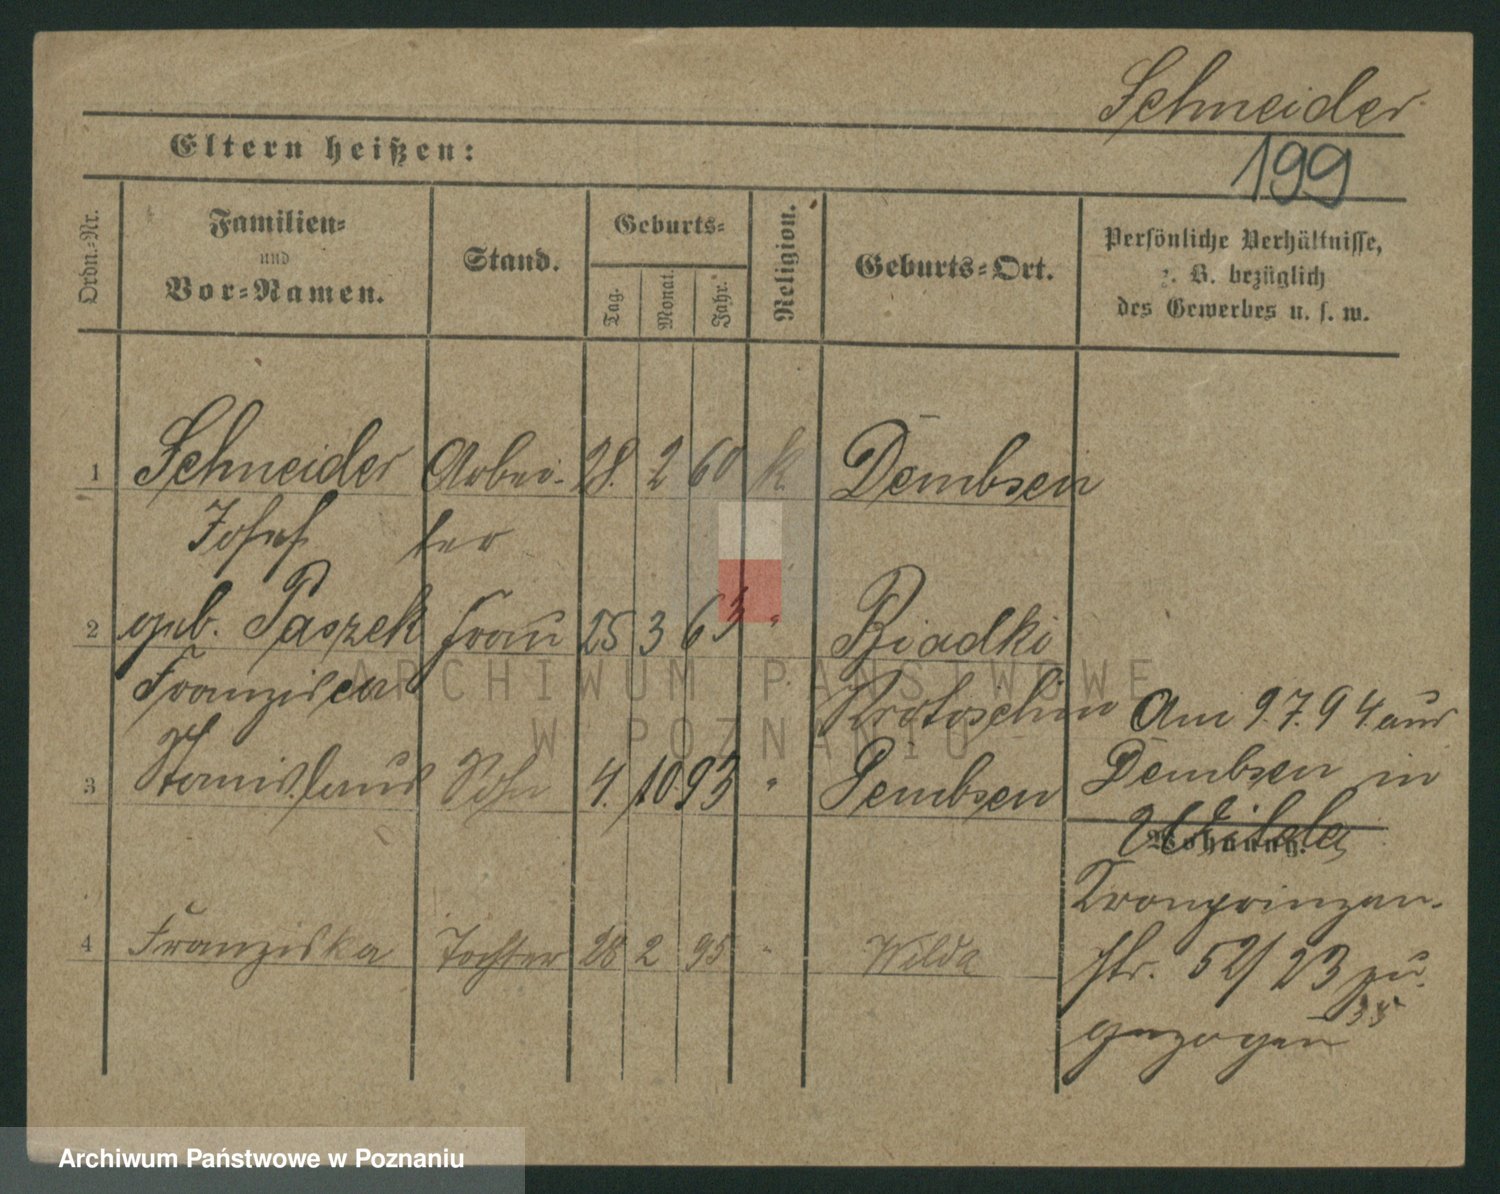 Schneider
199
Eltern heißen:
Ordn.-Nr.
Familien-
und
Vor-Namen.
Stand.
Geburts-
Tag.
Monat.
Jahr.
Religion.
Geburts-Ort.
Persönliche Verhältnisse,
z. B. bezüglich
des Gewerbes u. s. w.
1 Schneider Arbei- 28. 2 60 k. Dembsen
Josef ter
2 geb. Paszek Frau 25 3 63 " Biadki
Franziska Krotoschin
3 Stanislaus Sohn 4. 10 93 " Dembsen
Am 9.7.94. aus
Dembsen in
Wilda
Wohnung.
Kronprinzen-
str. 52/23 zu-
gezogen 35
4 Franziska Tochter 28 2 95 " Wilda
ARCHIWUM PAŃSTWOWE
W POZNANIU
Archiwum Państwowe w Poznaniu